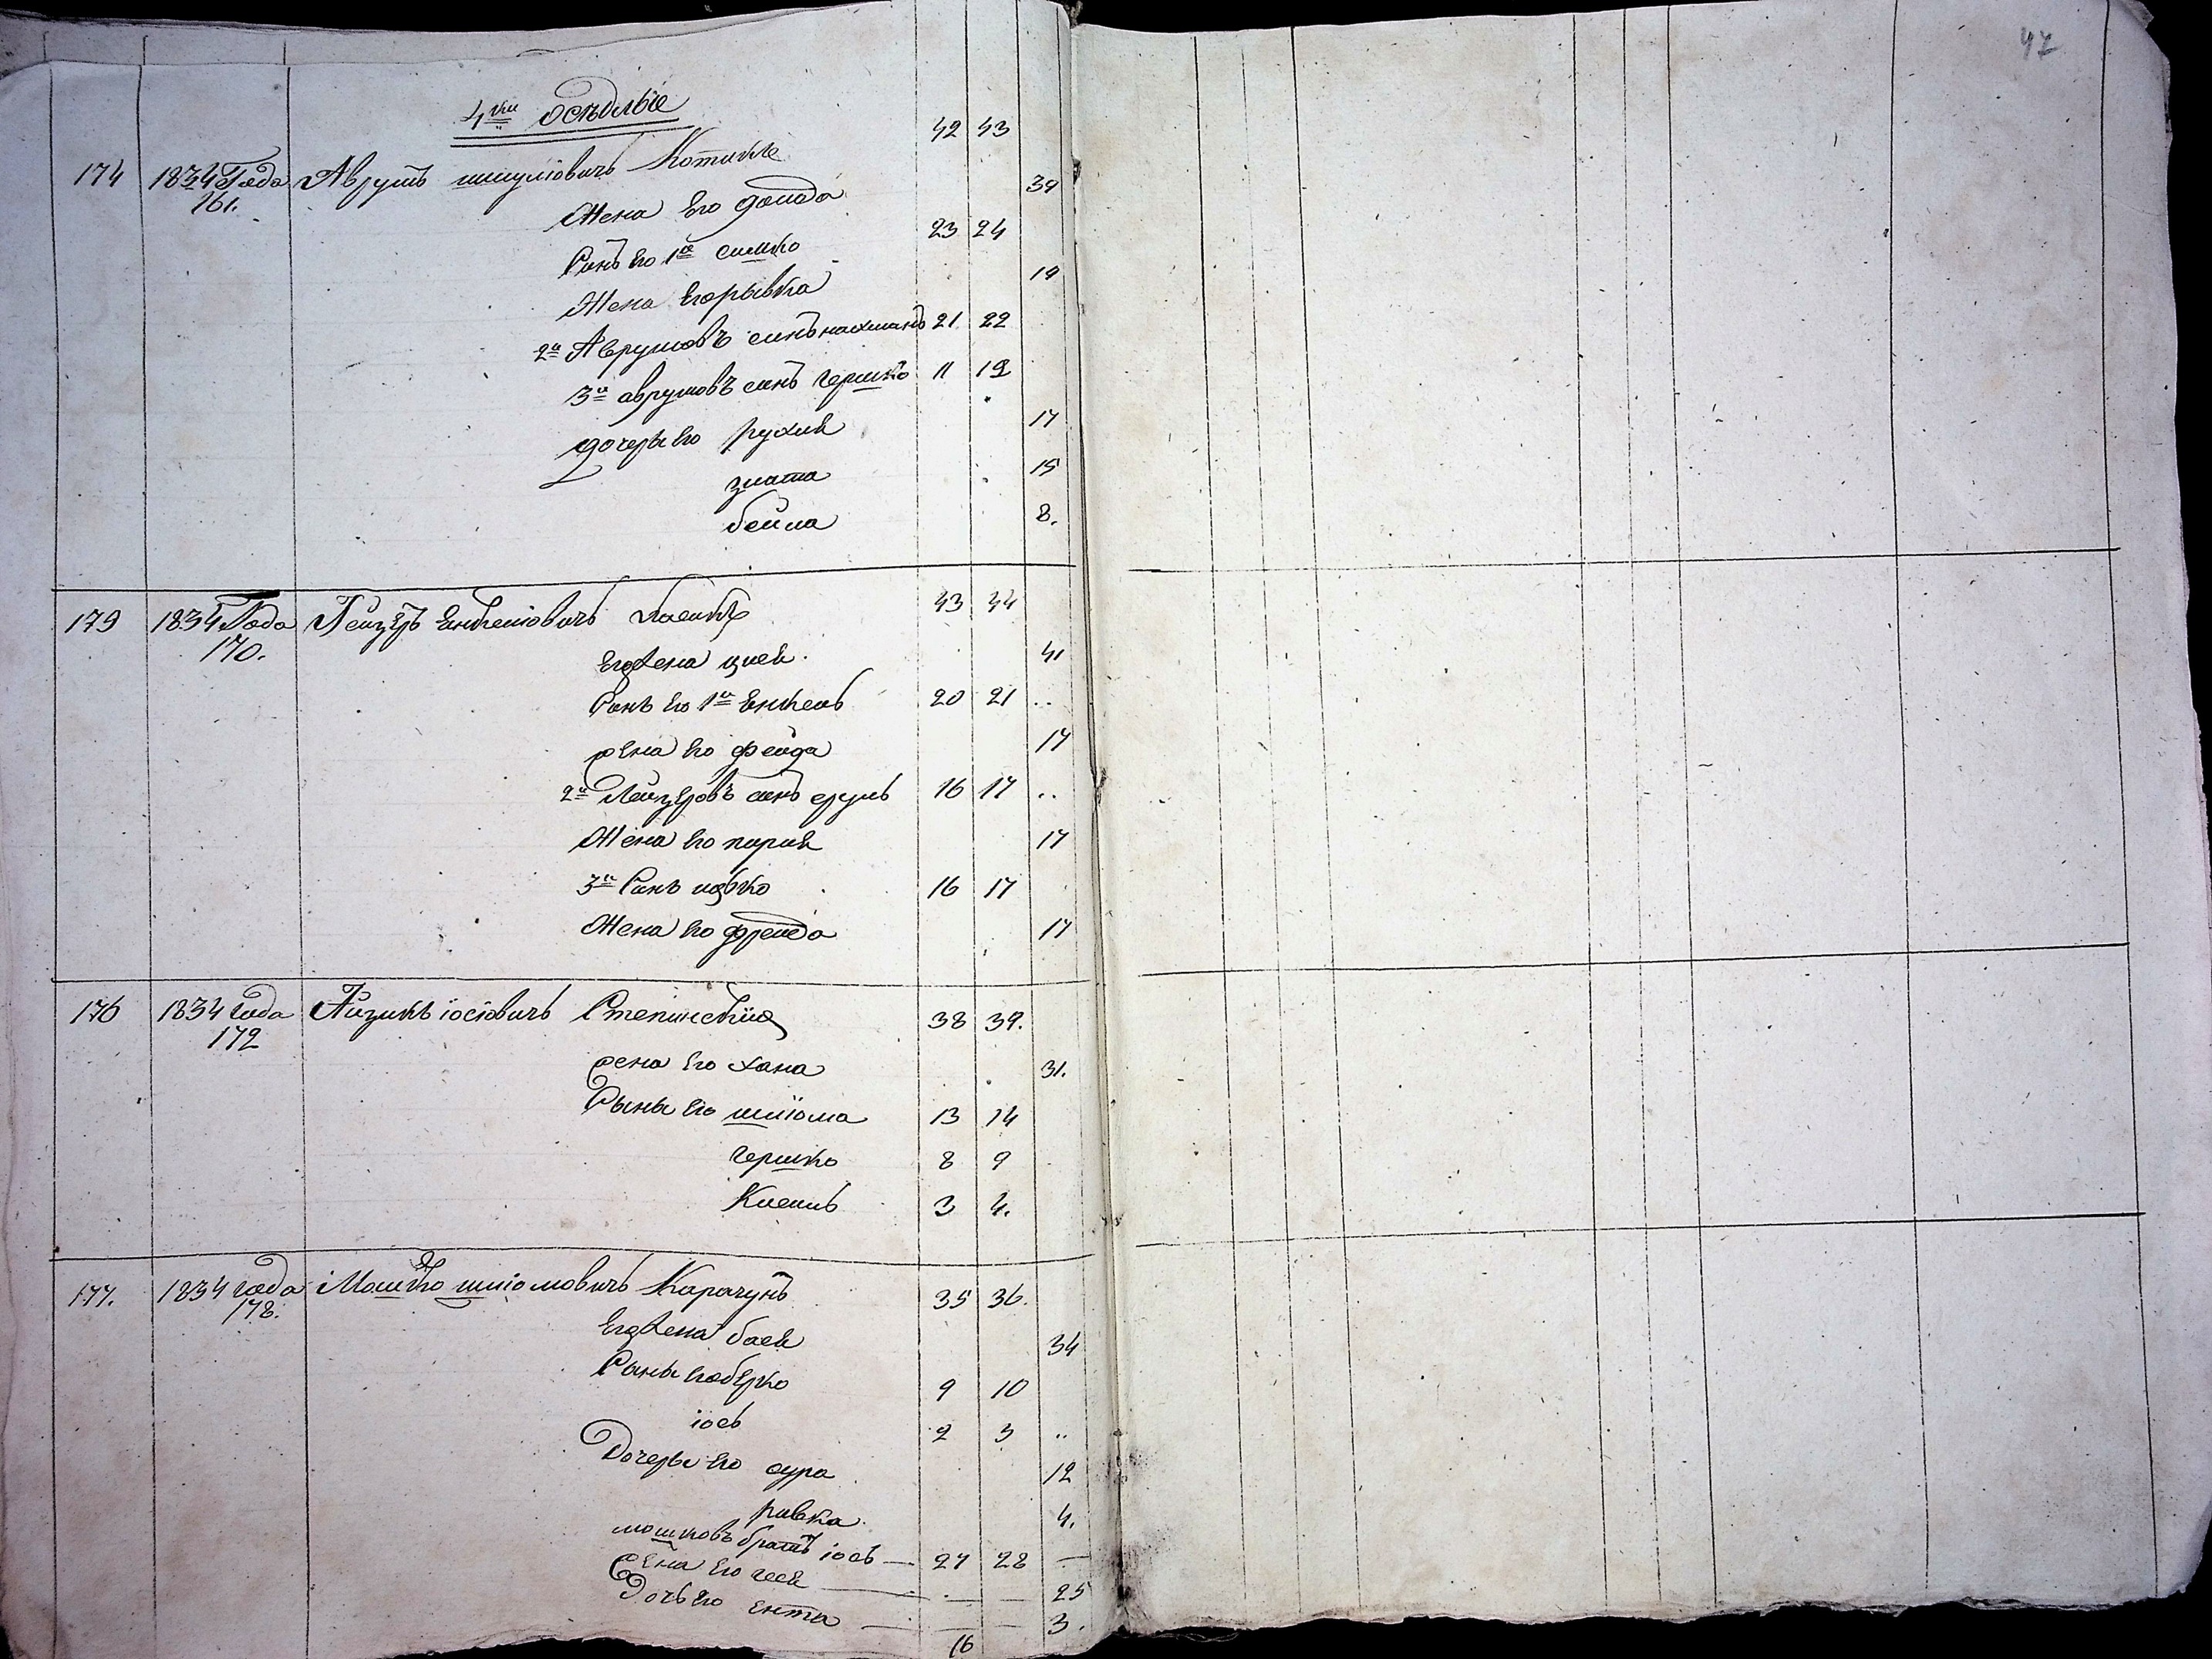 47
4ти осѣдлые
42 43
174 1834 Года Аврумъ шмуліовичъ Котикъ
161. 39
Жена Его Фейда
23 24
Сынъ его 1й симко
19
Жена Его рывка
2й Аврумовъ синъ нахманъ 21 22
3й аврумовъ синъ гершко 11 12
дочеры Его рухля 17
злата 15
бейла 8.
179 1834 Года Лейзеръ Енкеліовичъ 43 44
170.
Его жена цлея. 41
Синъ Его 1й Енкель 20 21 ..
жена Его фейга 17
2й Лейзеровъ синъ сруль 16 17 ..
Жена Его перля 17
3й Синъ ицко 16 17
Жена Его фрейда 17
176 1834 года Айзикъ іосіовичъ Степинскій 38 39.
172
жена Его хана 31.
Сыны Его шліома 13 14
гершко 8 9
Кисиль 3 4.
177. 1834 года Мошко шліомовичъ Карачунъ 35 36.
178.
Его жена бася 34
Сыны Его берко 9 10
іось 2 3 ..
Дочеры Его сура 12
ривка. 4.
мошковъ братъ іось — 27 28 —
жена Его гися — 25
Дочь Его Ента — 3.
16